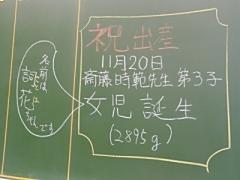 祝出産
11月20日
斎藤時範先生 第3子
女児誕生
(2895g)
名前は
詞花ちゃんです